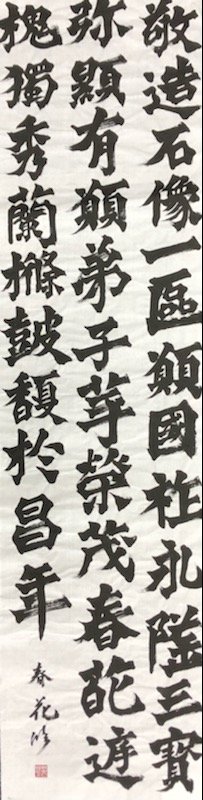 敬造石像一區願國祚永隆三寶
弥顯有願弟子等榮茂春葩庭
槐獨秀蘭條鼓馥於昌年
春花臨